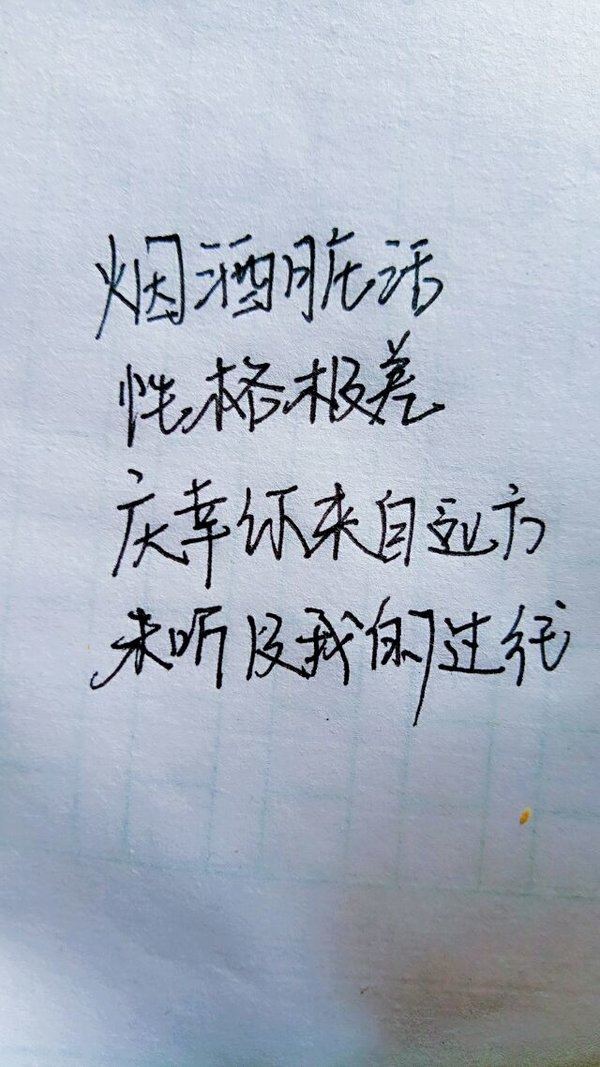 烟酒脏话
性格极差
庆幸你来自远方
未听及我的过往